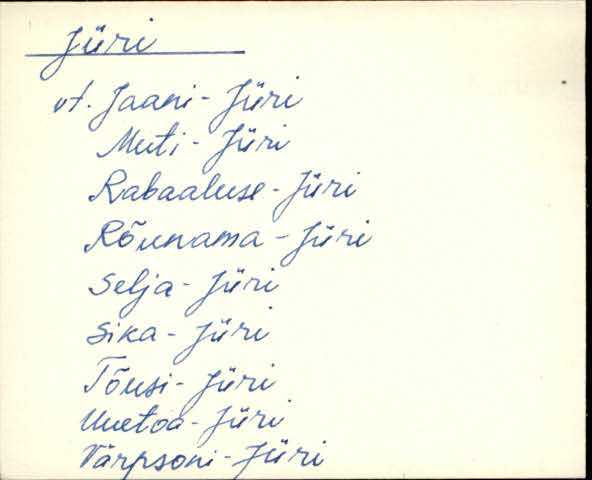 Jüri
vt. Jaani-Jüri
Muti-Jüri
Rabaaluse-Jüri
Rõunama-Jüri
Selja-Jüri
Sika-Jüri
Tõusi-Jüri
Uuetoa-Jüri
Värpsoni-Jüri